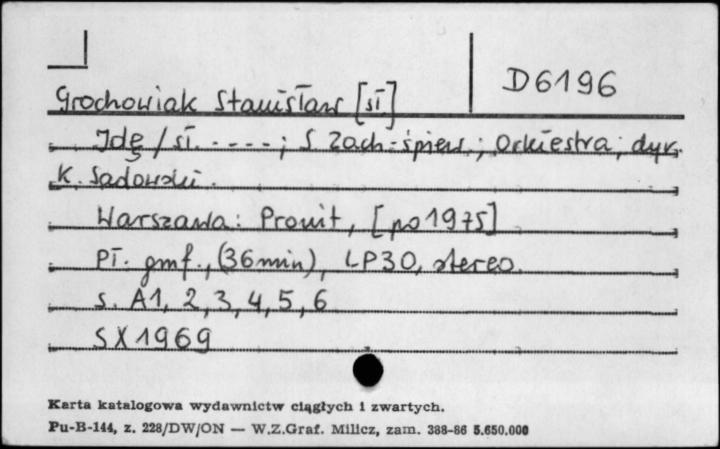 D6196
Grochowiak Stanisław [sł.]
Idę / sł. - - - - ; S. Zach - śpiew. ; Orkiestra ; dyr.
K. Sadowski.
Warszawa : Pronit, [po 1975]
Pł. gmf., (36 min), LP30, stereo.
s. A1, 2, 3, 4, 5, 6
SX1969
Karta katalogowa wydawnictw ciągłych i zwartych.
Pu-B-144, z. 228/DW/ON — W.Z.Graf. Milicz, zam. 388-86 5.650.000